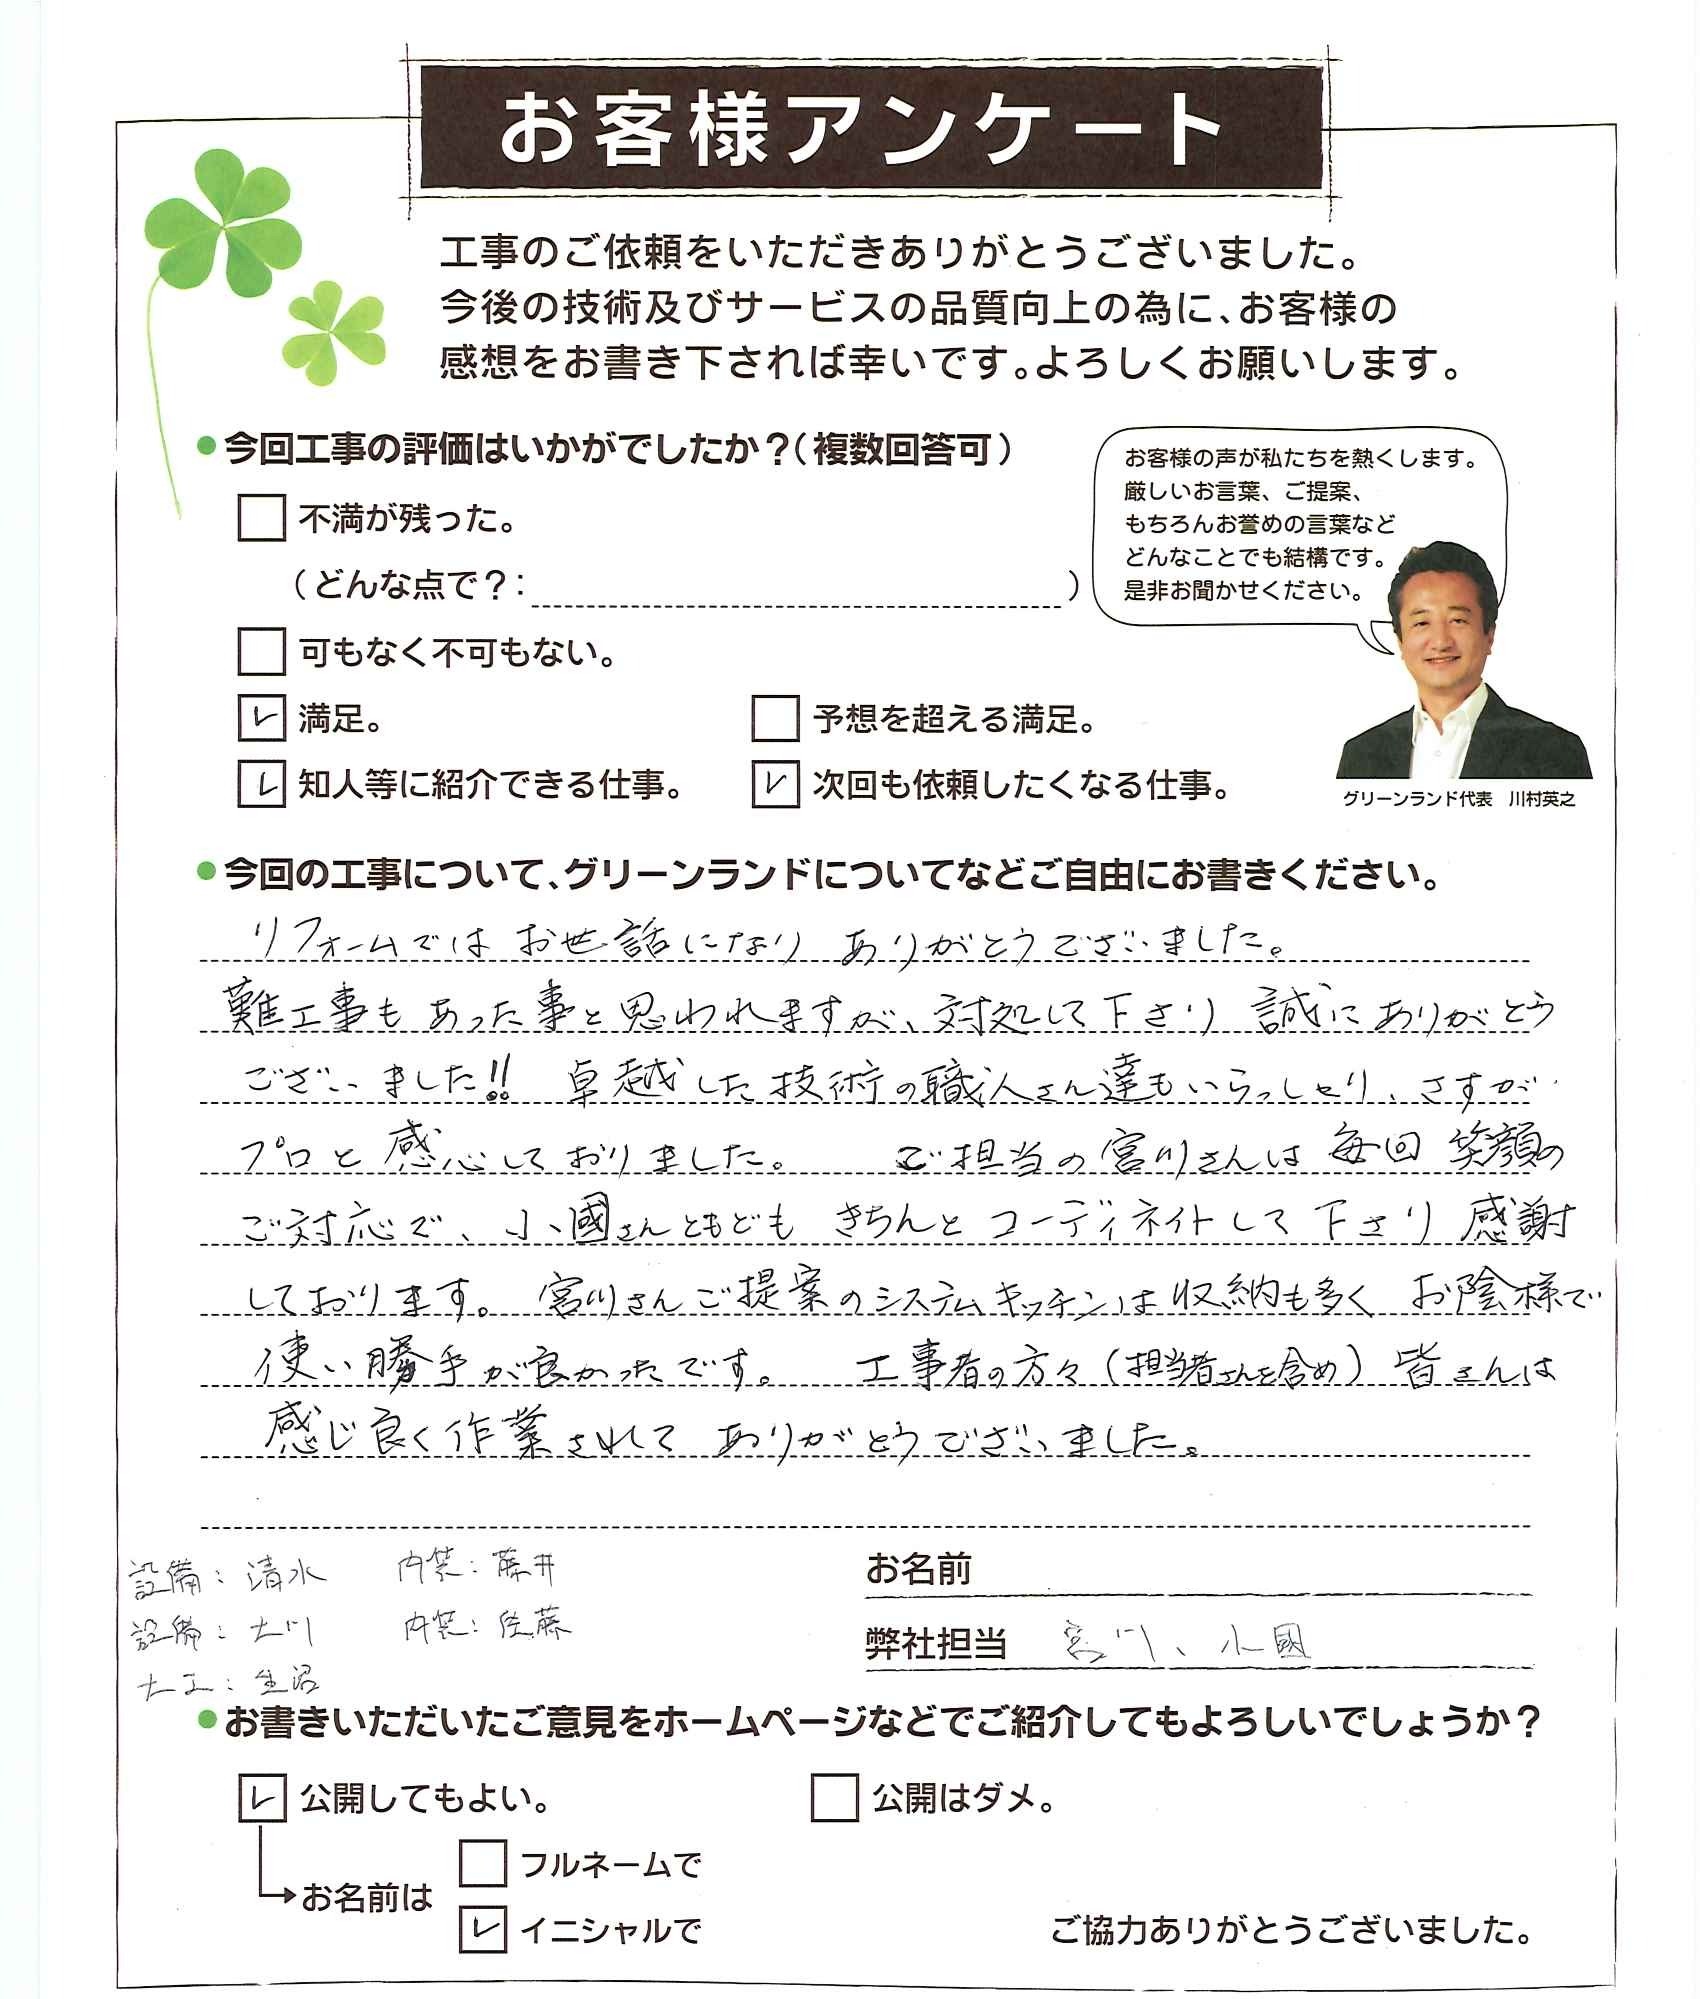 お客様アンケート
工事のご依頼をいただきありがとうございました。
今後の技術及びサービスの品質向上の為に、お客様の
感想をお書き下されば幸いです。よろしくお願いします。
●今回工事の評価はいかがでしたか？（複数回答可）
不満が残った。
（どんな点で？：　　　）
可もなく不可もない。
満足。
予想を超える満足。
知人等に紹介できる仕事。
次回も依頼したくなる仕事。
お客様の声が私たちを熱くします。
厳しいお言葉、ご提案、
もちろんお誉めの言葉など
どんなことでも結構です。
是非お聞かせください。
グリーンランド代表　川村英之
●今回の工事について、グリーンランドについてなどご自由にお書きください。
リフォームではお世話になり ありがとうございました。
難工事もあった事と思われますが、対処して下さり 誠にありがとう
ございました!! 卓越した技術の職人さん達もいらっしゃり、さすが
プロと感心しておりました。 ご担当の宮川さんは毎回 笑顔の
ご対応で、小國さんともども きちんと コーディネイトして下さり 感謝
しております。宮川さんご提案のシステムキッチンは収納も多く お陰様で
使い勝手が良かったです。 工事者の方々（担当者さんを含め）皆さんは
感じ良く作業されて ありがとうございました。
設備：清水　内装：藤井
設備：大川　内装：佐藤
大工：生沼
お名前
弊社担当　宮川、小國
●お書きいただいたご意見をホームページなどでご紹介してもよろしいでしょうか？
公開してもよい。
公開はダメ。
お名前は
フルネームで
イニシャルで
ご協力ありがとうございました。